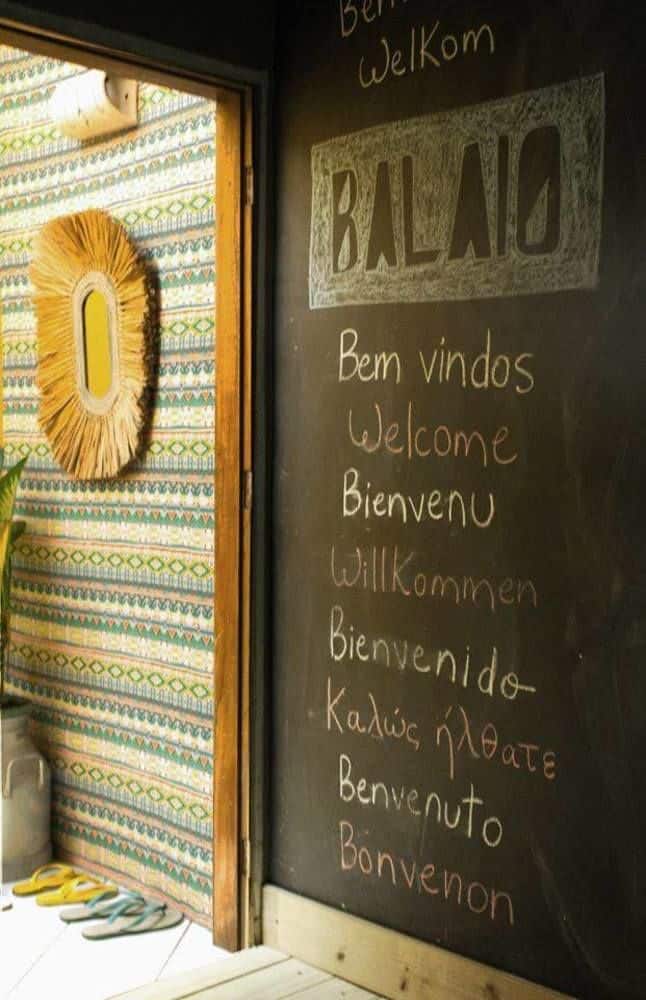 Welkom
BALAIO
Bem vindos
Welcome
Bienvenu
Willkommen
Bienvenido
Καλώς ήλθατε
Benvenuto
Bonvenon